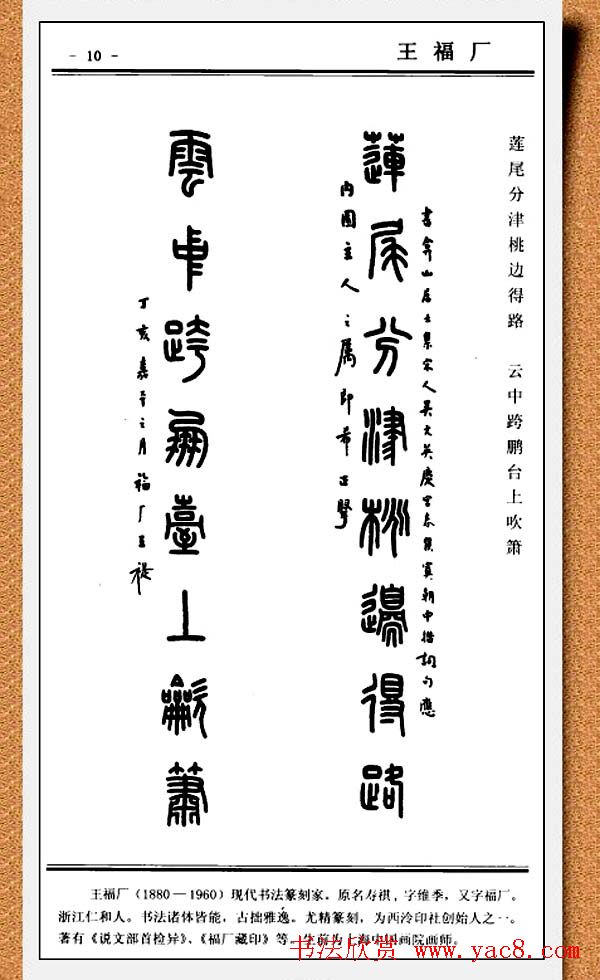 - 10 -
王福厂
莲尾分津桃边得路 云中跨鹏台上吹箫
蓮尾分津桃邊得路
内園主人之属即希正擘
雲中跨鵬臺上龡簫
丁亥嘉平之月福厂王禔
王福厂（1880－1960）现代书法篆刻家。原名寿祺，字维季，又字福厂。
浙江仁和人。书法诸体皆能，古拙雅逸。尤精篆刻，为西泠印社创始人之一。
著有《说文部首检异》、《福厂藏印》等。生前为上海中国画院画师。
书法欣赏 www.yac8.com